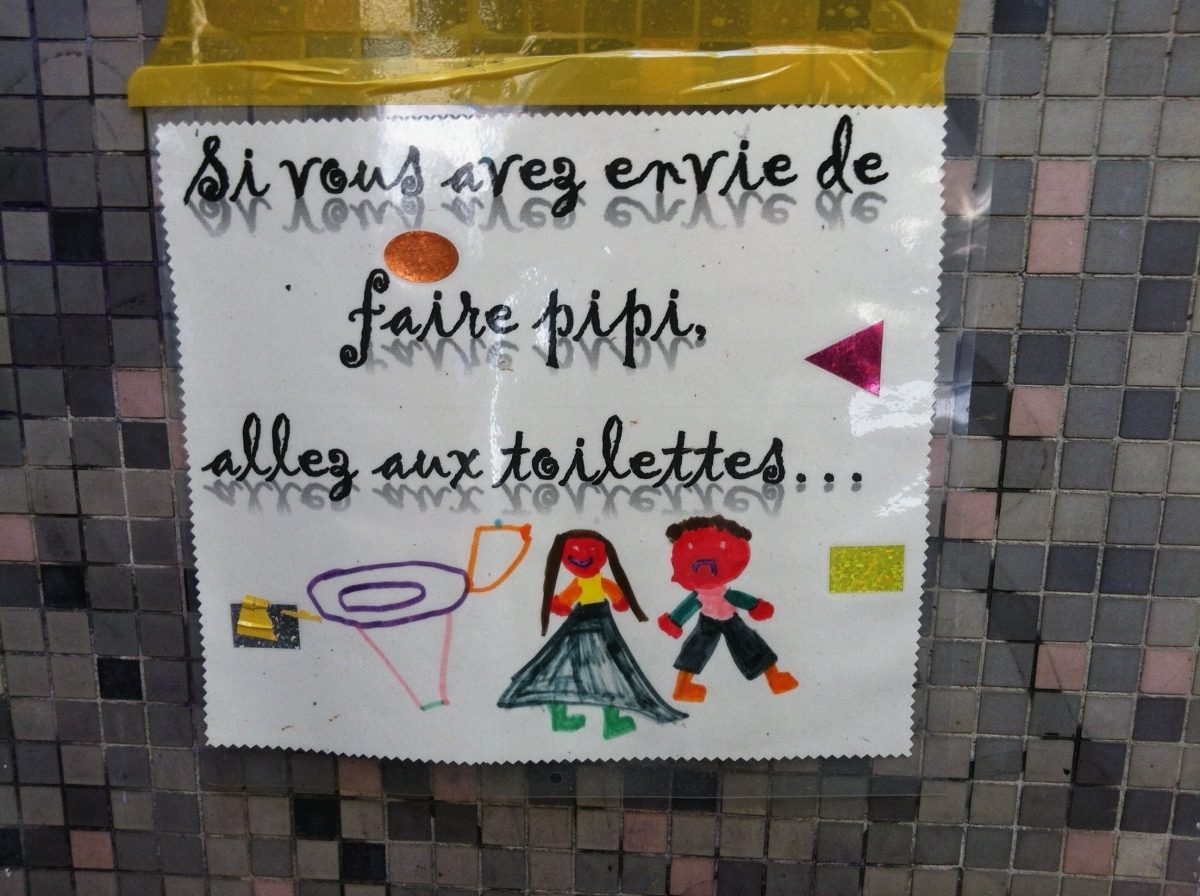 Si vous avez envie de
faire pipi,
allez aux toilettes...